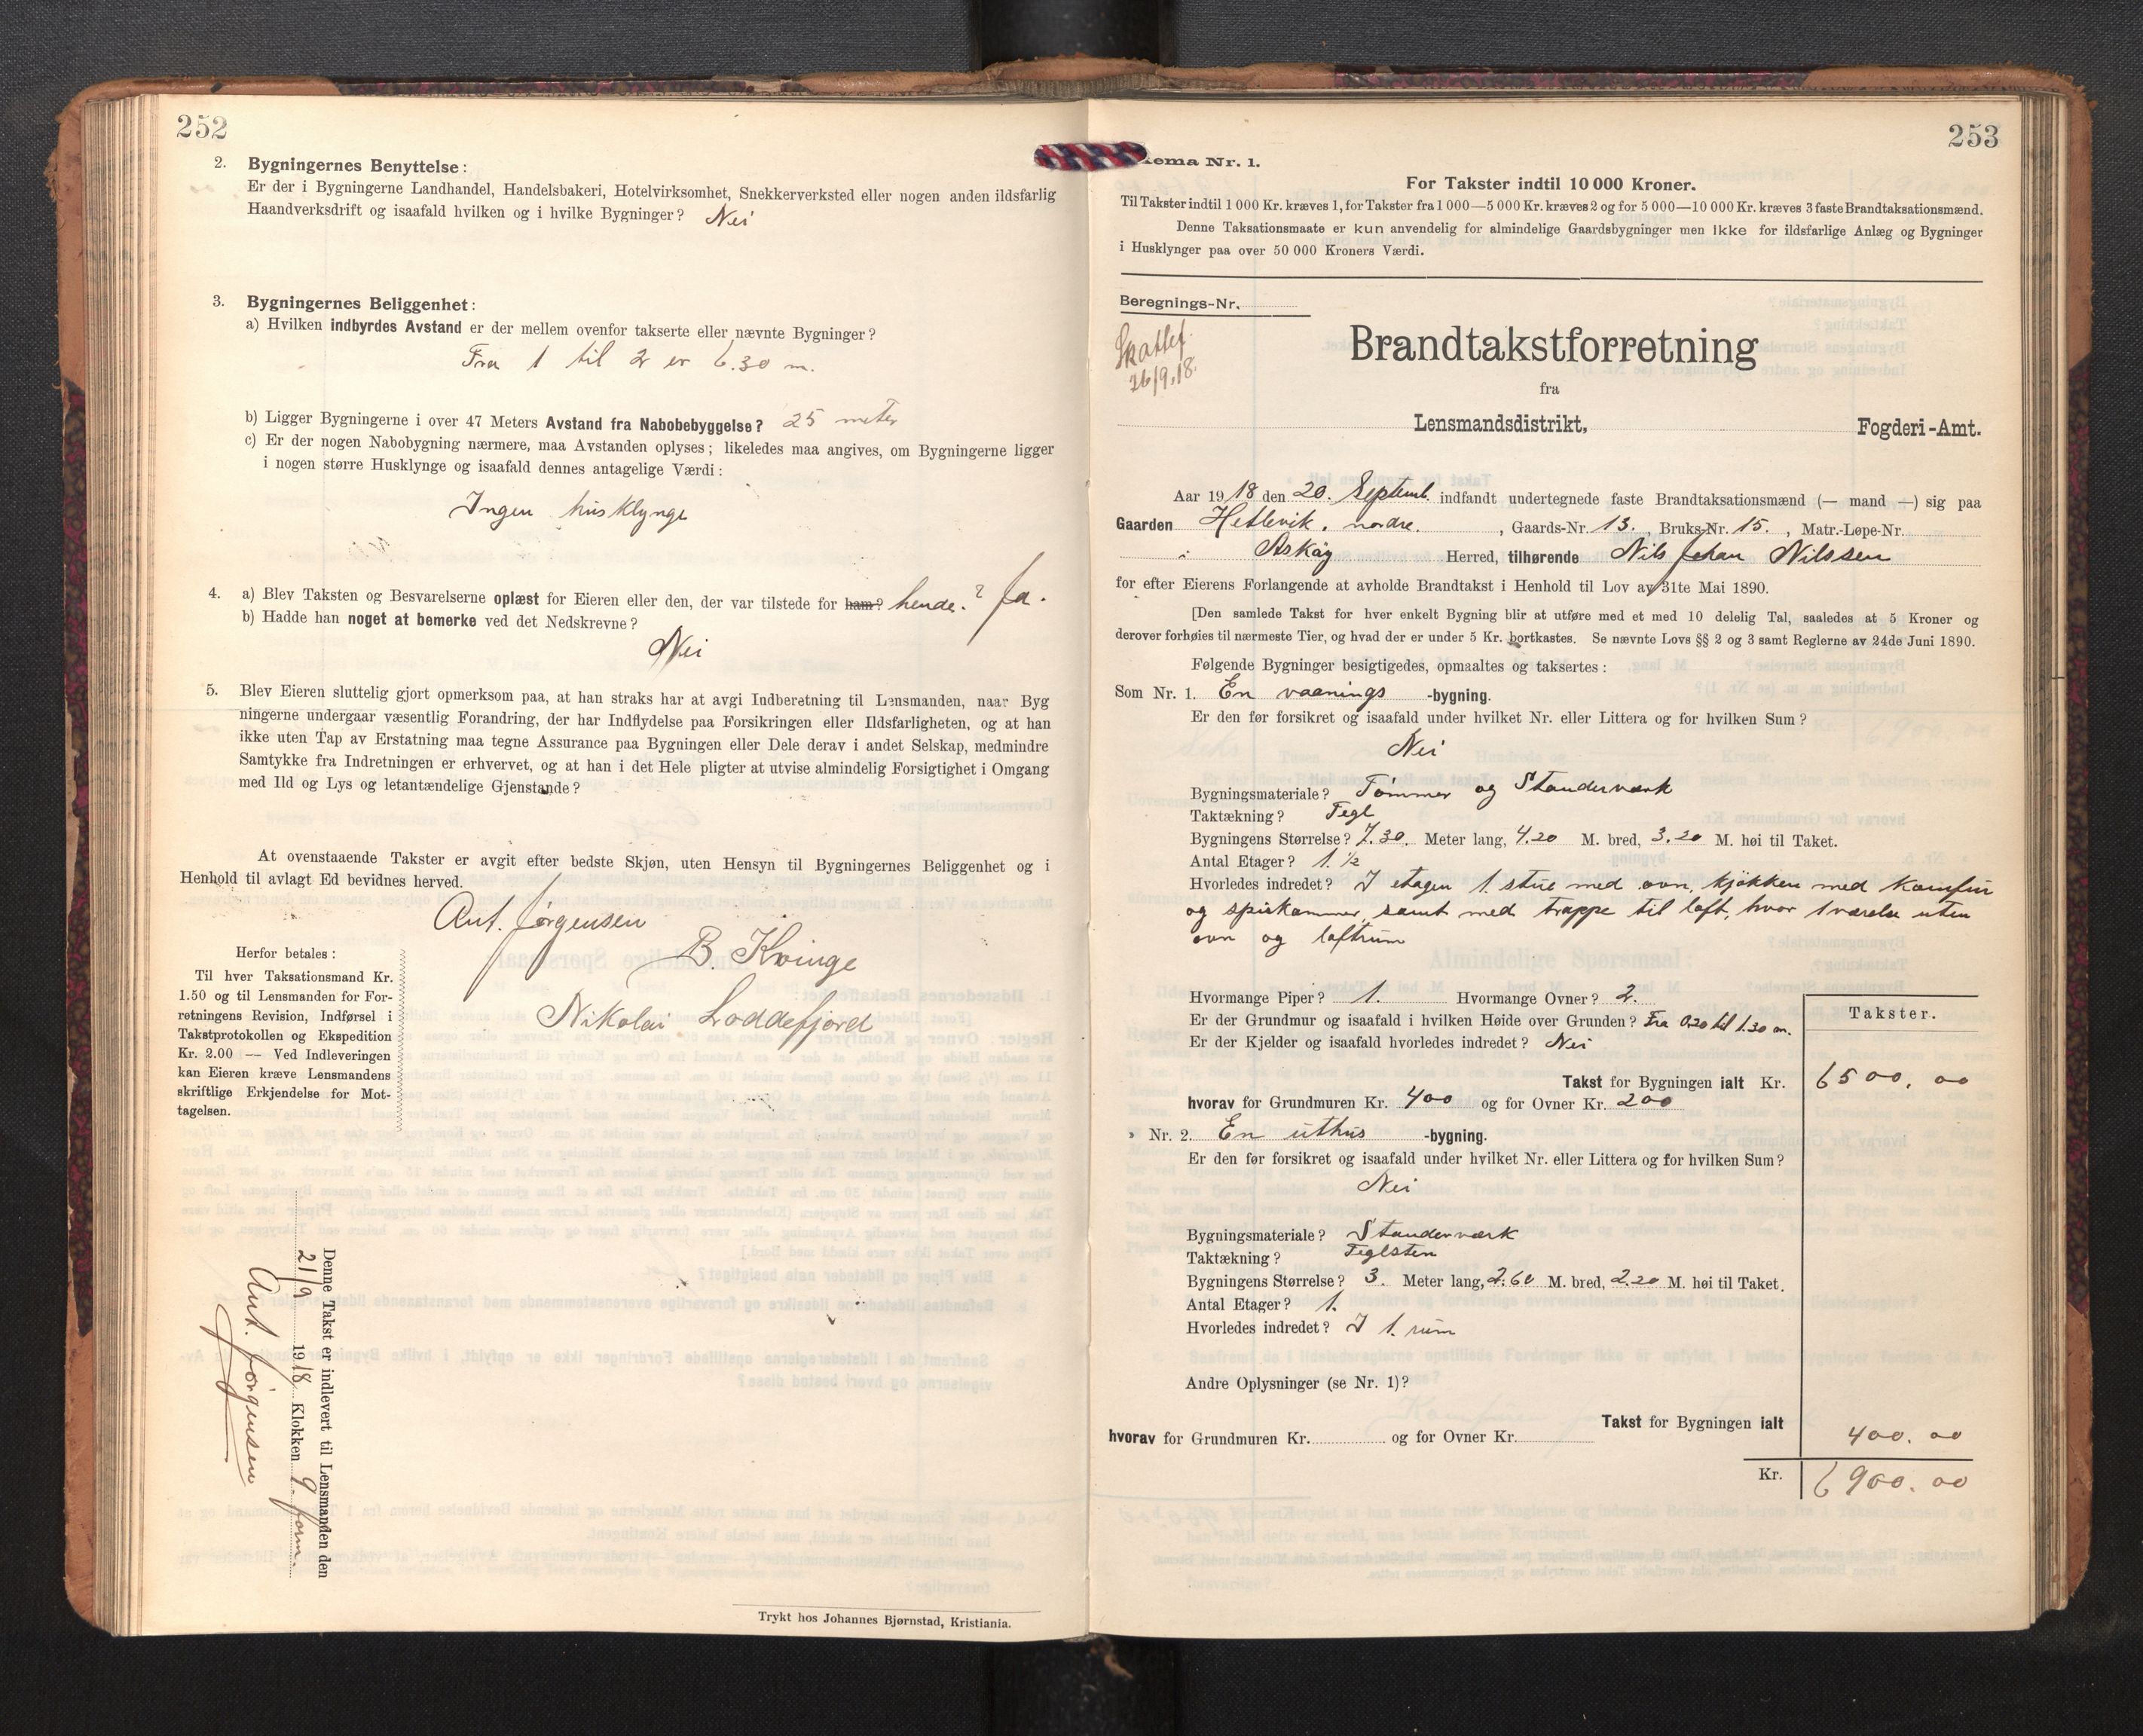 252
2. Bygningernes Benyttelse:
Er der i Bygningerne Landhandel, Handelsbakeri, Hotelvirksomhet, Snekkerverksted eller nogen anden ildsfarlig
Haandverksdrift og isaafald hvilken og i hvilke Bygninger? Nei
3. Bygningernes Beliggenhet:
a) Hvilken indbyrdes Avstand er der mellem ovenfor takserte eller nævnte Bygninger?
Fra 1 til 2 er 6.30 m.
b) Ligger Bygningerne i over 47 Meters Avstand fra Nabobebyggelse? 25 meter
c) Er der nogen Nabobygning nærmere, maa Avstanden oplyses; likeledes maa angives, om Bygningerne ligger
i nogen større Husklynge og isaafald dennes antagelige Værdi:
Ingen husklynge
4. a) Blev Taksten og Besvarelserne oplæst for Eieren eller den, der var tilstede for ham? hende.? Ja.
b) Hadde han noget at bemerke ved det Nedskrevne?
Nei
5. Blev Eieren sluttelig gjort opmerksom paa, at han straks har at avgi Indberetning til Lensmanden, naar Byg
ningerne undergaar væsentlig Forandring, der har Indflydelse paa Forsikringen eller Ildsfarligheten, og at han
ikke uten Tap av Erstatning maa tegne Assurance paa Bygningen eller Dele derav i andet Selskap, medmindre
Samtykke fra Indretningen er erhvervet, og at han i det Hele pligter at utvise almindelig Forsigtighet i Omgang
med Ild og Lys og letantændelige Gjenstande?
At ovenstaaende Takster er avgit efter bedste Skjøn, uten Hensyn til Bygningernes Beliggenhet og i
Henhold til avlagt Ed bevidnes herved.
Ant. Jørgensen
B. Kvinge
Nikolai Loddefjord
Herfor betales:
Til hver Taksationsmand Kr.
1.50 og til Lensmanden for For-
retningens Revision, Indførsel i
Takstprotokollen og Ekspedition
Kr. 2.00 — Ved Indleveringen
kan Eieren kræve Lensmandens
skriftlige Erkjendelse for Mot-
tagelsen.
Denne Takst er indlevert til Lensmanden den
21/9 1918 Klokken 9 form.
Ant. Jørgensen
Trykt hos Johannes Bjørnstad, Kristiania.
253
ema Nr. 1.
For Takster indtil 10 000 Kroner.
Til Takster indtil 1 000 Kr. kræves 1, for Takster fra 1 000—5 000 Kr. kræves 2 og for 5 000—10 000 Kr. kræves 3 faste Brandtaksationsmænd.
Denne Taksationsmaate er kun anvendelig for almindelige Gaardsbygninger men ikke for ildsfarlige Anlæg og Bygninger
i Husklynger paa over 50 000 Kroners Værdi.
Beregnings-Nr.
Skattef.
26/9.18.
Brandtakstforretning
fra
Lensmandsdistrikt, Fogderi-Amt.
Aar 1918 den 20. Septemb. indfandt undertegnede faste Brandtaksationsmænd (— mand —) sig paa
Gaarden Hetlevik, nordre. , Gaards-Nr. 13. , Bruks-Nr. 15. , Matr.-Løpe-Nr.
i Askøy Herred, tilhørende Nils Johan Nilssen
for efter Eierens Forlangende at avholde Brandtakst i Henhold til Lov av 31te Mai 1890.
[Den samlede Takst for hver enkelt Bygning blir at utføre med et med 10 delelig Tal, saaledes at 5 Kroner og
derover forhøies til nærmeste Tier, og hvad der er under 5 Kr. bortkastes. Se nævnte Lovs §§ 2 og 3 samt Reglerne av 24de Juni 1890.
Følgende Bygninger besigtigedes, opmaaltes og taksertes:
Som Nr. 1. En vaanings -bygning.
Er den før forsikret og isaafald under hvilket Nr. eller Littera og for hvilken Sum?
Nei
Bygningsmateriale? Tømmer og Standerværk
Taktækning? Tegl
Bygningens Størrelse? 7.30. Meter lang, 4.20 M. bred, 3.20 M. høi til Taket.
Antal Etager? 1. ½
Hvorledes indredet? I etagen 1 stue med ovn, kjøkken med komfur
og spiskammer, samt med trappe til loft, hvor 1 værelse uten
ovn og loftrum
Hvormange Piper? 1. Hvormange Ovner? 2.
Er der Grundmur og isaafald i hvilken Høide over Grunden? Fra 0.20 til 1.30 m.
Er der Kjelder og isaafald hvorledes indredet? Nei
Takster.
Takst for Bygningen ialt Kr. 6500.00
hvorav for Grundmuren Kr. 400 og for Ovner Kr. 200
» Nr. 2. En uthus -bygning.
Er den før forsikret og isaafald under hvilket Nr. eller Littera og for hvilken Sum?
Nei
Bygningsmateriale? Standerværk
Taktækning? Teglsten
Bygningens Størrelse? 3. Meter lang, 2.60 M. bred, 2.20 M. høi til Taket.
Antal Etager? 1.
Hvorledes indredet? I 1. rum
Andre Oplysninger (se Nr. 1)?
Takst for Bygningen ialt 400.00
hvorav for Grundmuren Kr. og for Ovner Kr.
Kr. 6900.00